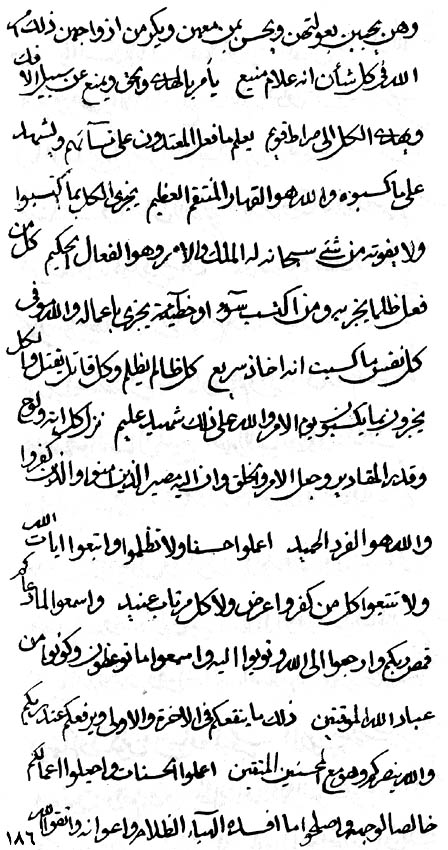 وهن يجبين بعولتهن ويحسن بمن معهن ويكر من ازواجهن ذلك
الله في كل شأن انه علام منيع يأمر بالهدى والحق ويمنع عن سبيل الافك
ويهدى الكل الى صراط قويم يعلم ما فعل المعتدون على نسآئهم ويشهد
على ما كسبوه والله هو القهار المنتقم العظيم يجزى الكل بما اكتسبوا
ولا يفوته من شئ سبحانه له الملك والامر وهو الفعال الحكيم كل من
فعل ظلما يجز به ومن اكتسب سوء او خطيئة يجزى باعماله والله وفى
كل نفس ما كسبت انه اخاذ سريع كل ظالم يظلم وكل قاتل يقتل والكل
يجزون بما يكسبو يوم الامر والله على ذلك شهيد عليم نزل كل اية ولوح
وقدر المقادير وجعل الامر والخلق وان اليه مصير الذين امنوا والذين كفروا
والله هو الفرد الحميد اعملوا حسنا ولا تظلموا واتبعوا ايات الله
ولا تتبعوا كل من كفر واعرض ولا كل مرتاب عنيد واسمعوا لما دعاكم
قمص ربكم وارجعوا الى الله وتوبوا اليه واسمعوا ما توعظون وكونوا من
عباد الله الموقنين ذلك ما ينفعكم فى الاخرة والاولى ويرفعكم عند ربكم
والله ينصركم وهو مع المحسنين المتقين اعملوا الحسنات واجعلوا اعمالكم
خالصا لوجهه واصلحوا ما افسدت الظلام واعوانه واتقوا الله
١٨٦